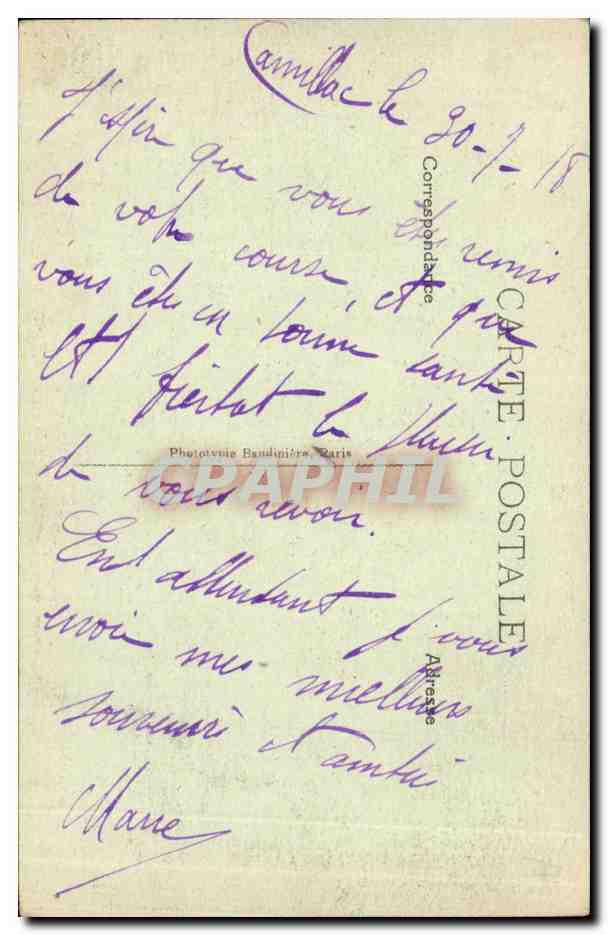 Camillac le 30-7-18
J'espère que vous êtes remis
de votre course, et que
vous êtes en bonne santé
Et bientot le plaisir
de vous revoir.
En attendant je vous
envoie mes meilleurs
souvenirs et amitié
Marie
CARTE POSTALE
Correspondance
Adresse
Phototypie Baudinière, Paris
CPAPHIL